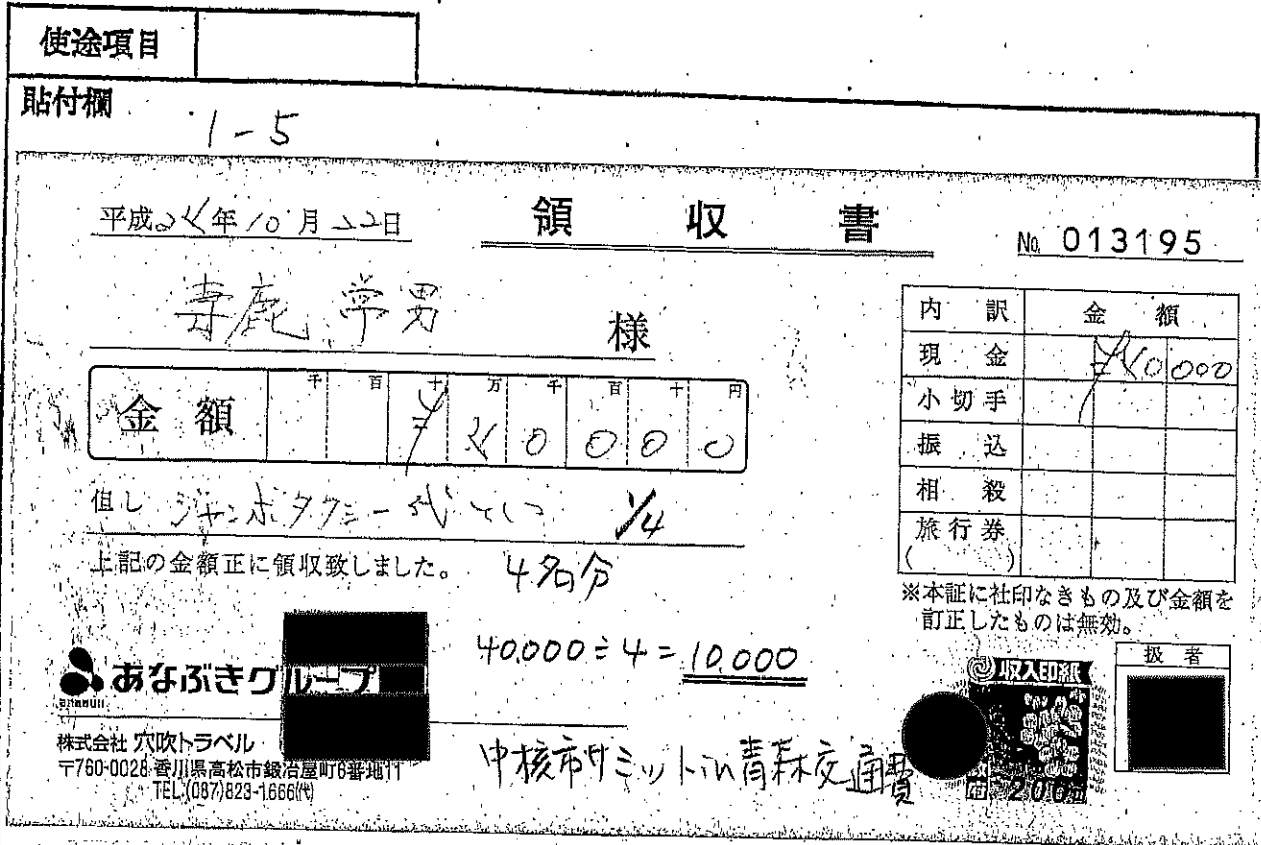 使途項目
貼付欄
1-5
平成24年10月22日
領収書
No. 013195
様
内訳 金額
現金 ¥40,000
小切手
振込
相殺
旅行券
( )
金額 千百十万千百十円
¥40000
但し ジャンボタクシー代として 1/4
上記の金額正に領収致しました。
4名分
40,000÷4=10,000
※本証に社印なきもの及び金額を
訂正したものは無効。
扱者
収入印紙
200
あなぶきグループ
株式会社 穴吹トラベル
〒760-0028 香川県高松市鍛冶屋町6番地11
TEL(087)823-1666(代)
中核市サミットin青森交通費